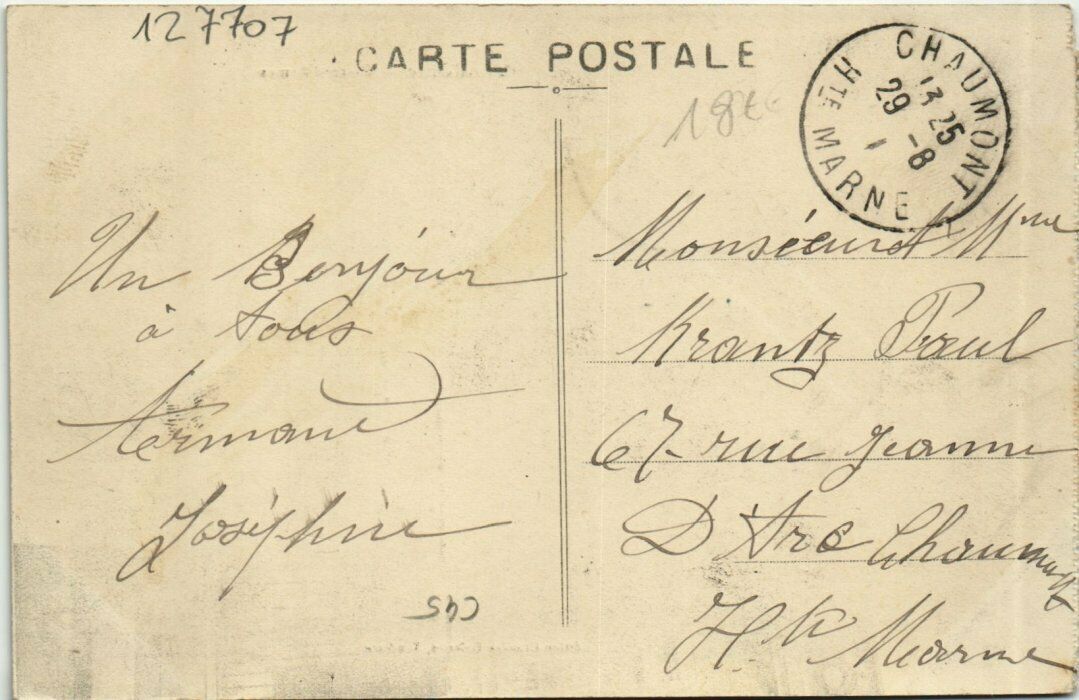 127707
CARTE POSTALE
CHAUMONT
13 25
29 -8
HTE MARNE
Un Bonjour
à tous
Armand
Joséphine
Monsieur et Mme
Krantz Paul
67 rue Jeanne
D'Arc Chaumont
Hte Marne